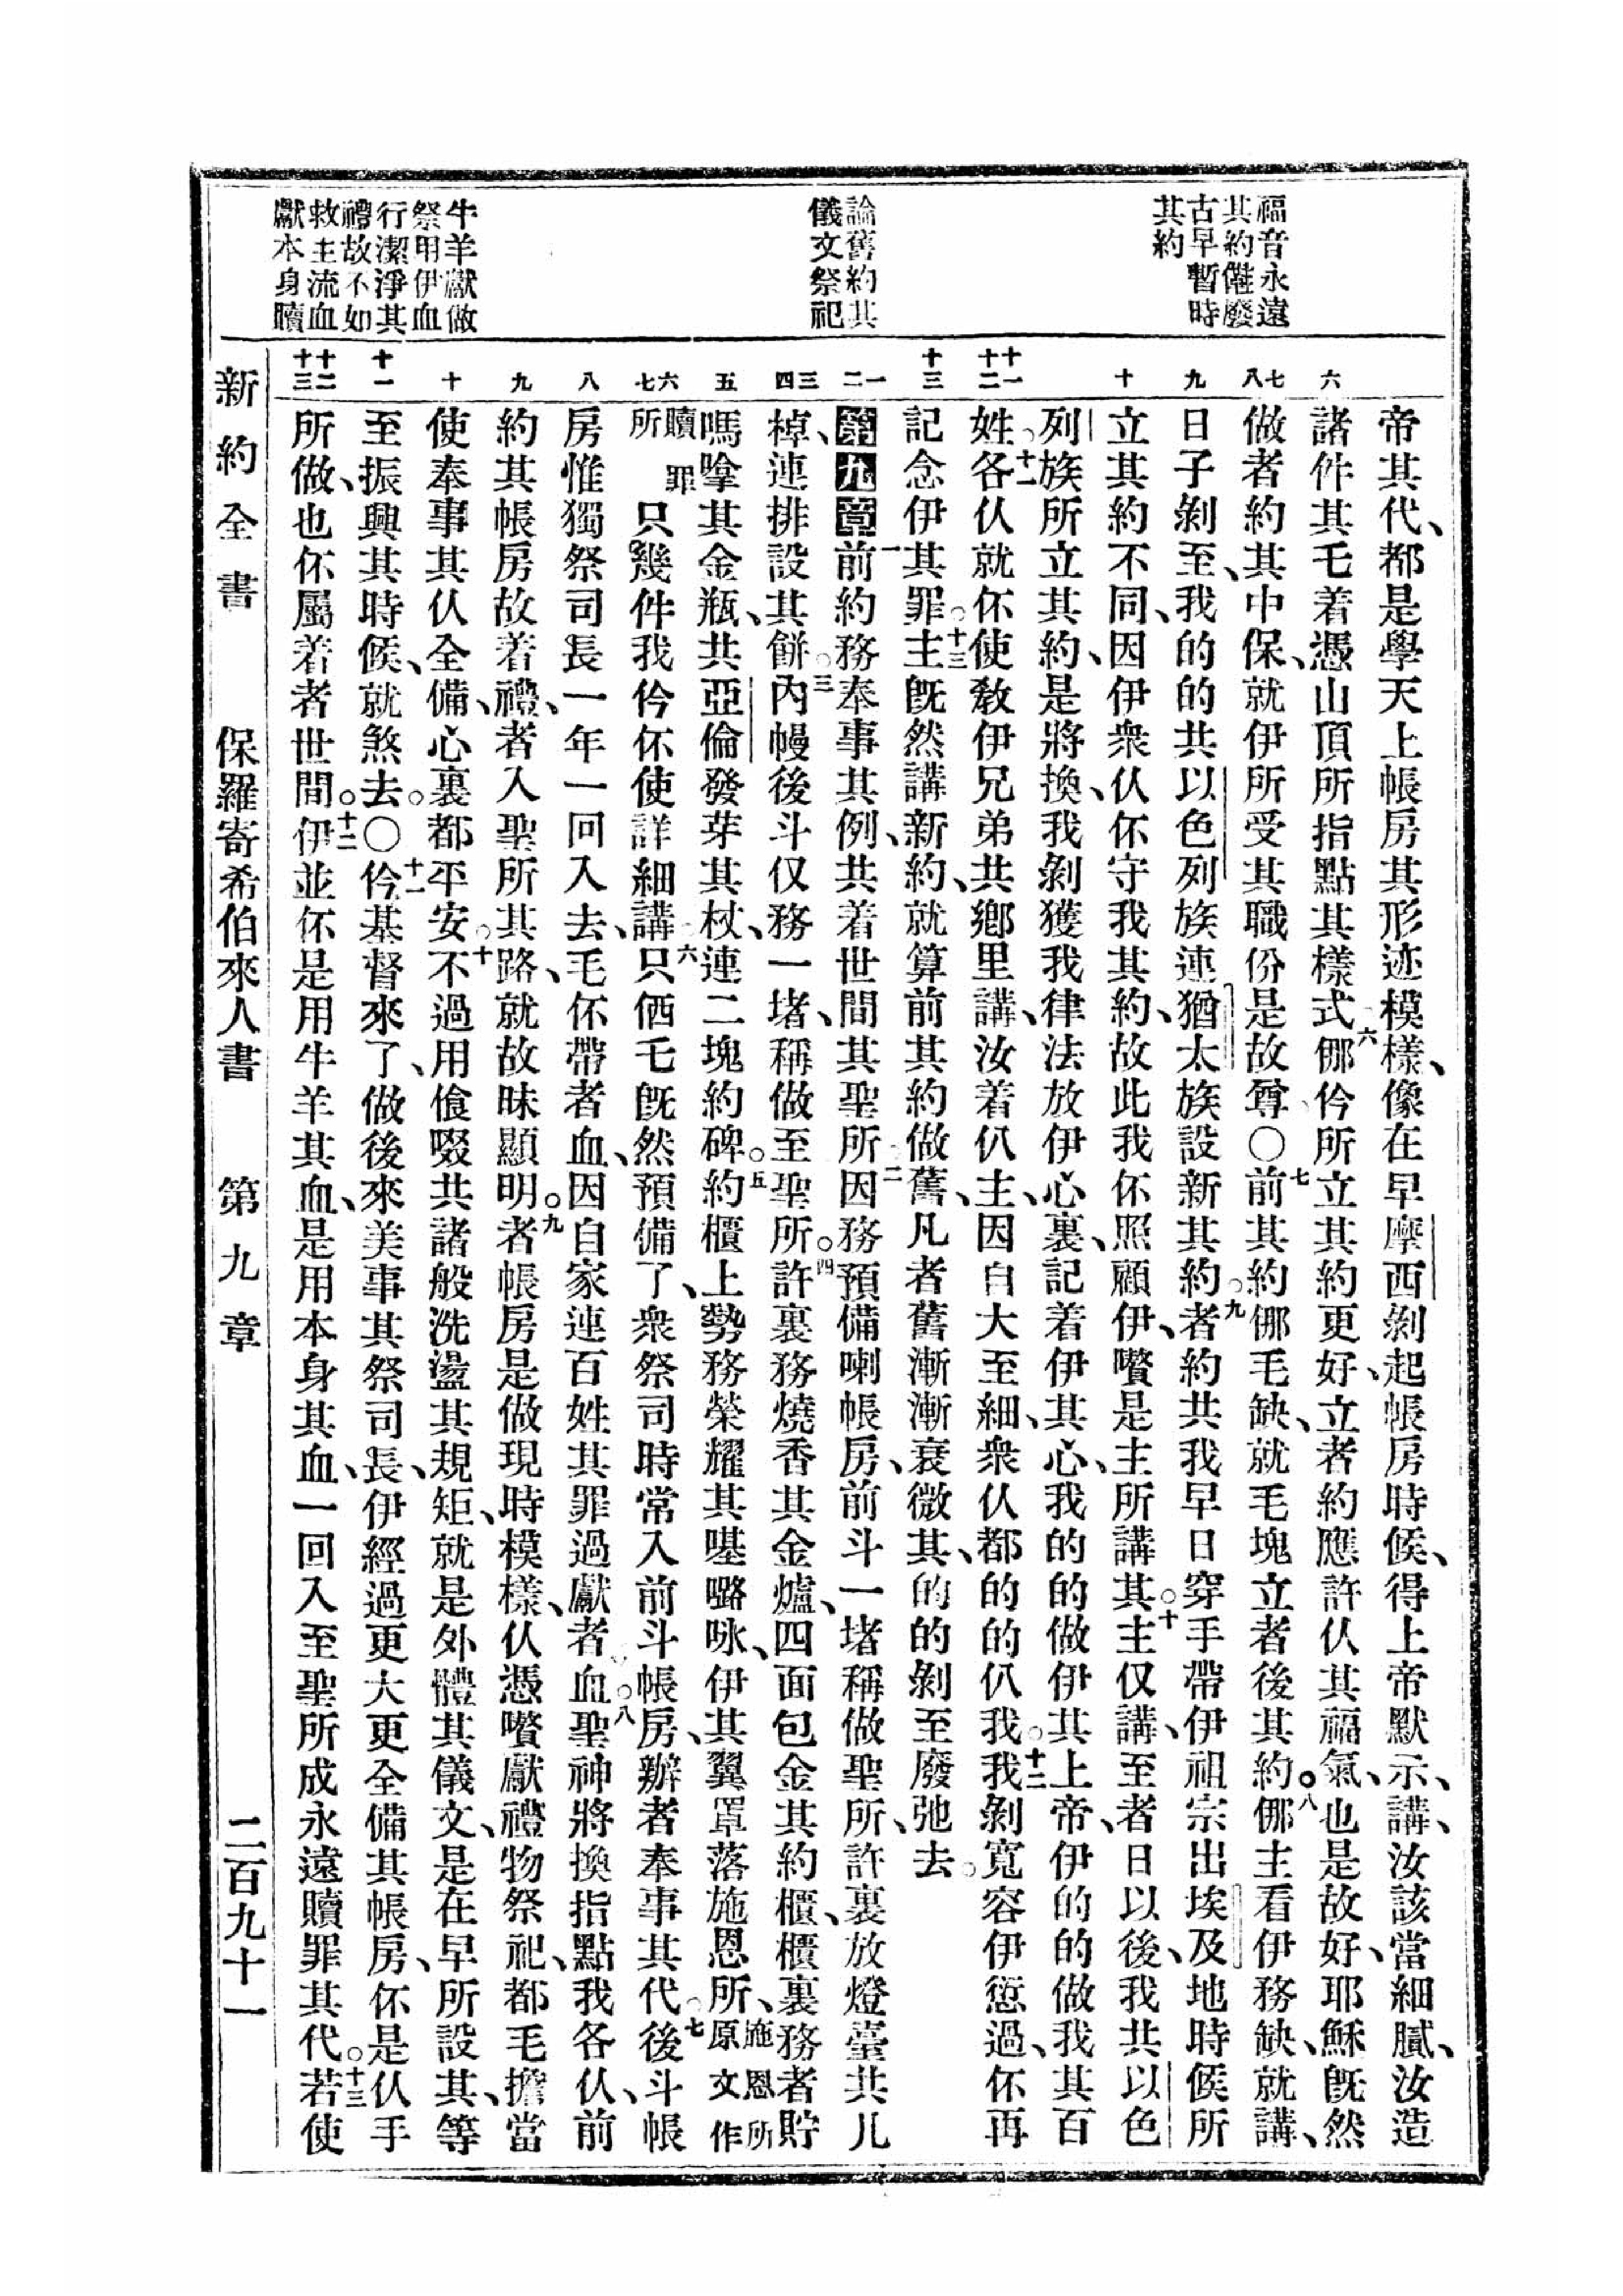 福音永遠
其約僅廢
古早暫時
其約
論舊約其
儀文祭祀
牛羊獻做
祭用伊血
行潔淨其
禮故不如
救主流血
獻本身贖
六
七
八
九
十
十一
十二
十三
一
二
三
四
五
六
七
八
九
十
十一
十二
十三
帝其代、都是學天上帳房其形迹模樣、像在早摩西剝起帳房時候、得上帝默示、講、汝該當細膩、汝造
諸件其乇着憑山頂所指點其樣式六㑚仱所立其約更好、立者約應許仈其福氣、也是故好、耶穌旣然
做者約其中保、就伊所受其職份是故尊〇七前其約㑚毛缺、就毛塊立者後其約。八㑚主看伊務缺、就講、
日子剝至、我的的共以色列族連猶太族設新其約。九者約共我早日穿手帶伊祖宗出埃及地時候所
立其約不同、因伊衆仈伓守我其約、故此我伓照顧伊、嚽是主所講其。十主仅講、至者日以後、我共以色
列族所立其約、是將換、我剝獲我律法放伊心裏、記着伊其心、我的的做伊其上帝、伊的的做我其百
姓。十一各仈就伓使敎伊兄弟共鄉里講、汝着仈主、因自大至細、衆仈都的的仈我。十二我剝寬容伊愆過、伓再
記念伊其罪。十三主旣然講新約、就算前其約做舊、凡者舊漸漸衰微其、的的剝至廢弛去。
第九章一前約務奉事其例、共着世間其聖所二因務預備喇帳房、前斗一堵稱做聖所、許裏放燈臺共儿
棹、連排設其餅。三內幔後斗仅務一堵、稱做至聖所。四許裏務燒香其金爐、四面包金其約櫃、櫃裏務者貯
嗎嗱其金瓶、共亞倫發芽其杖、連二塊約碑。五約櫃上勢務榮耀其𠸎嚕咏、伊其翼罩落施恩所、施恩所原文作
贖罪所只幾件我仱伓使詳細講。六只価乇旣然預備了、衆祭司時常入前斗帳房、辦者奉事其代。七後斗帳
房惟獨祭司長一年一回入去、毛伓帶者血、因自家連百姓其罪過獻者血。八聖神將換指點我各仈、前
約其帳房故着、禮、者入聖所其路、就故昧顯明。九者帳房是做現時模樣、仈憑嚽獻禮物祭祀、都毛擔當
使奉事其仈全備、心裏都平安。十不過用飡啜共諸般洗盪其規矩、就是外體其儀文、是在早所設其、等
至振興其時候、就煞去。〇十一仱基督來了、做後來美事其祭司長、伊經過更大更全備其帳房、伓是仈手
所做、也伓屬着者世間。十二伊並伓是用牛羊其血、是用本身其血、一回入至聖所成永遠贖罪其代。十三若使
新約全書 保羅寄希伯來人書 第九章 二百九十一